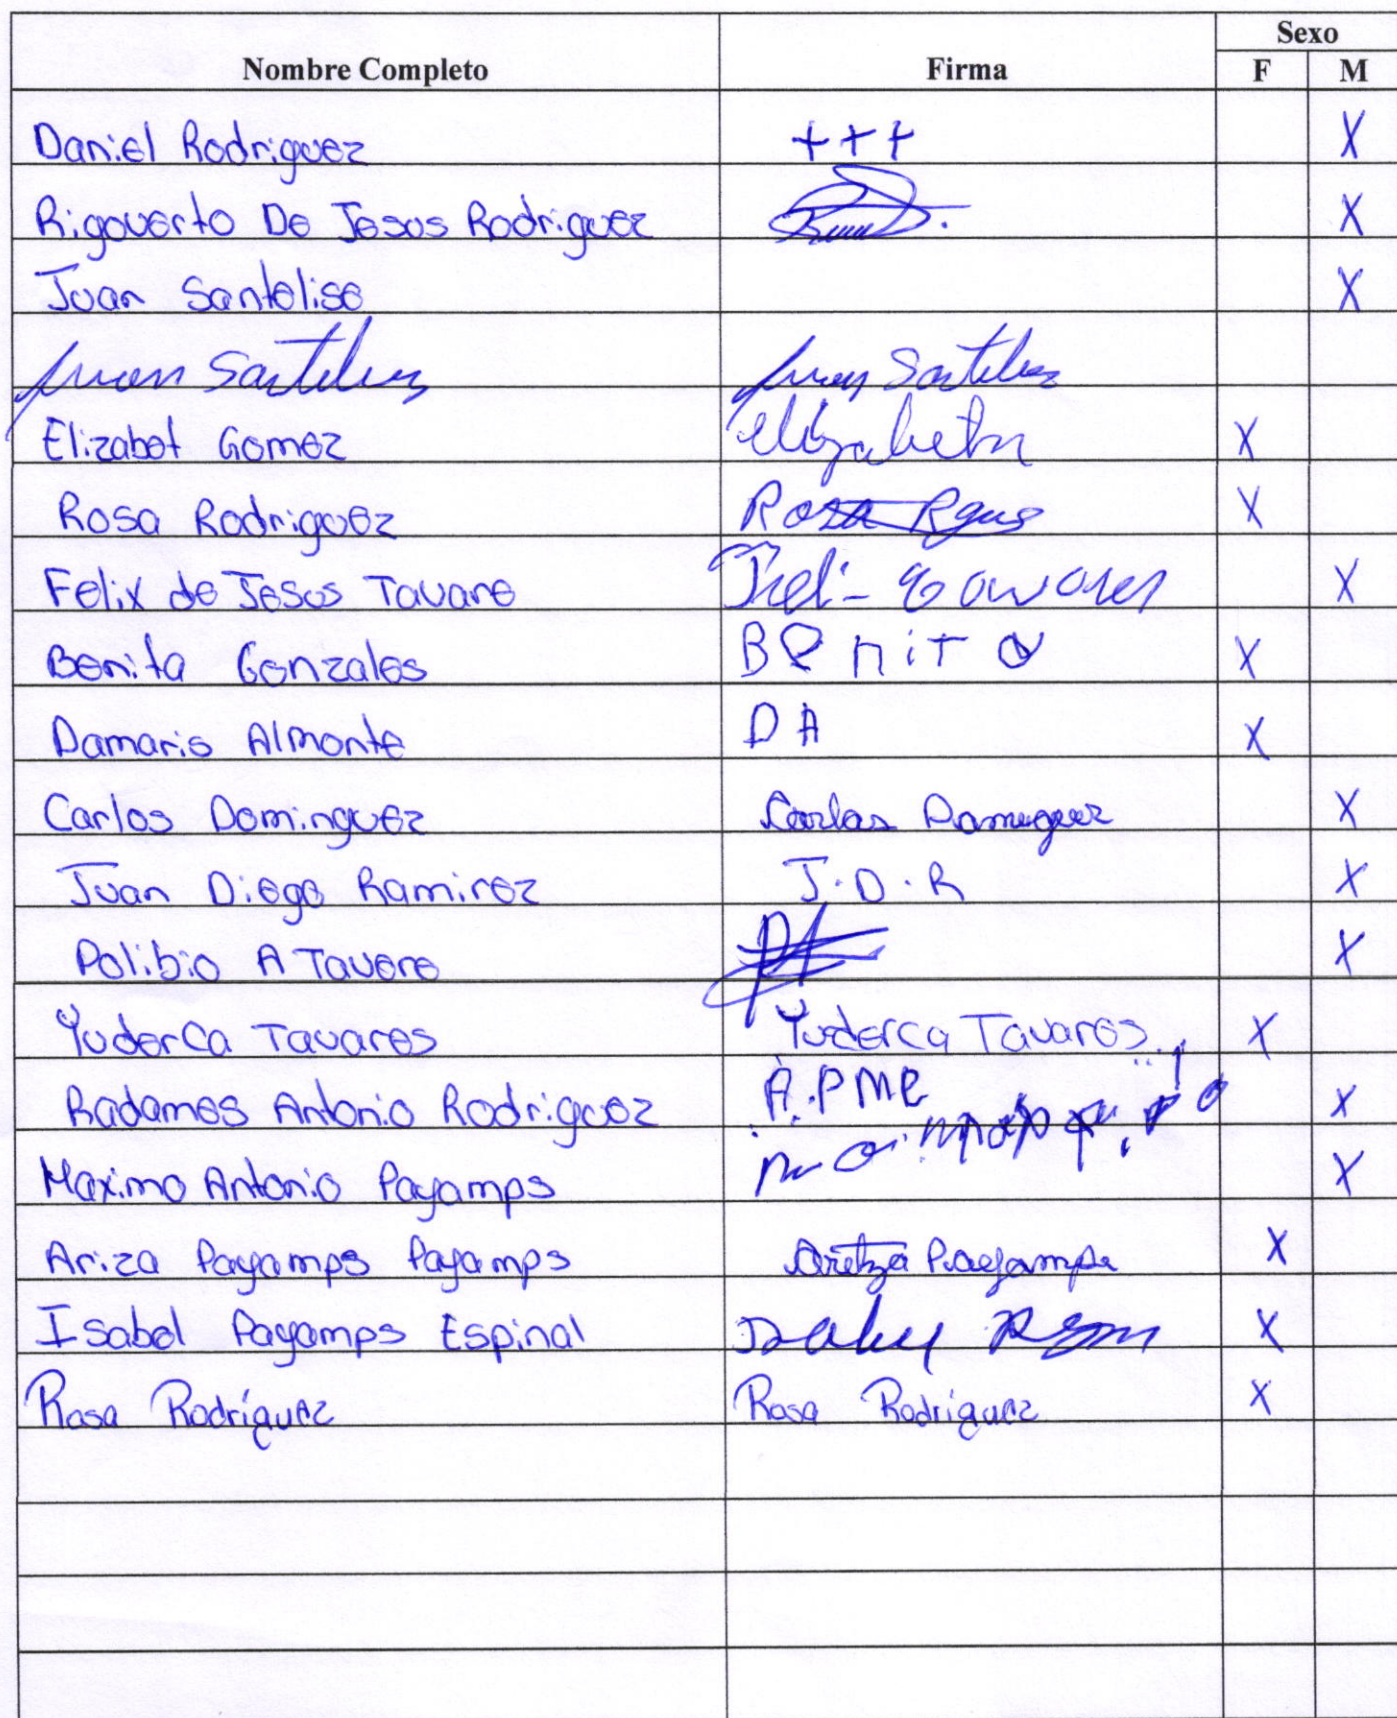 Sexo
Nombre Completo Firma F M
Daniel Rodriguez +++ X
Rigoverto De Jesus Rodriguez X
Juan Santelise X
Juan Santelises Juan Santelises
Elizabet Gomez Elizabeth X
Rosa Rodriguez Rosa X
Felix de Jesus Tavare X
Benita Gonzales Benita X
Damaris Almonte DA X
Carlos Dominguez Carlos X
Juan Diego Ramirez J.D.R X
Polibio A Tavere X
Yuderca Tavares Yuderca Tavares X
Radames Antonio Rodriguez X
Maximo Antonio Payamps X
Ariza Payamps Payamps X
Isabel Payamps Espinal X
Rosa Rodríguez Rosa Rodriguez X